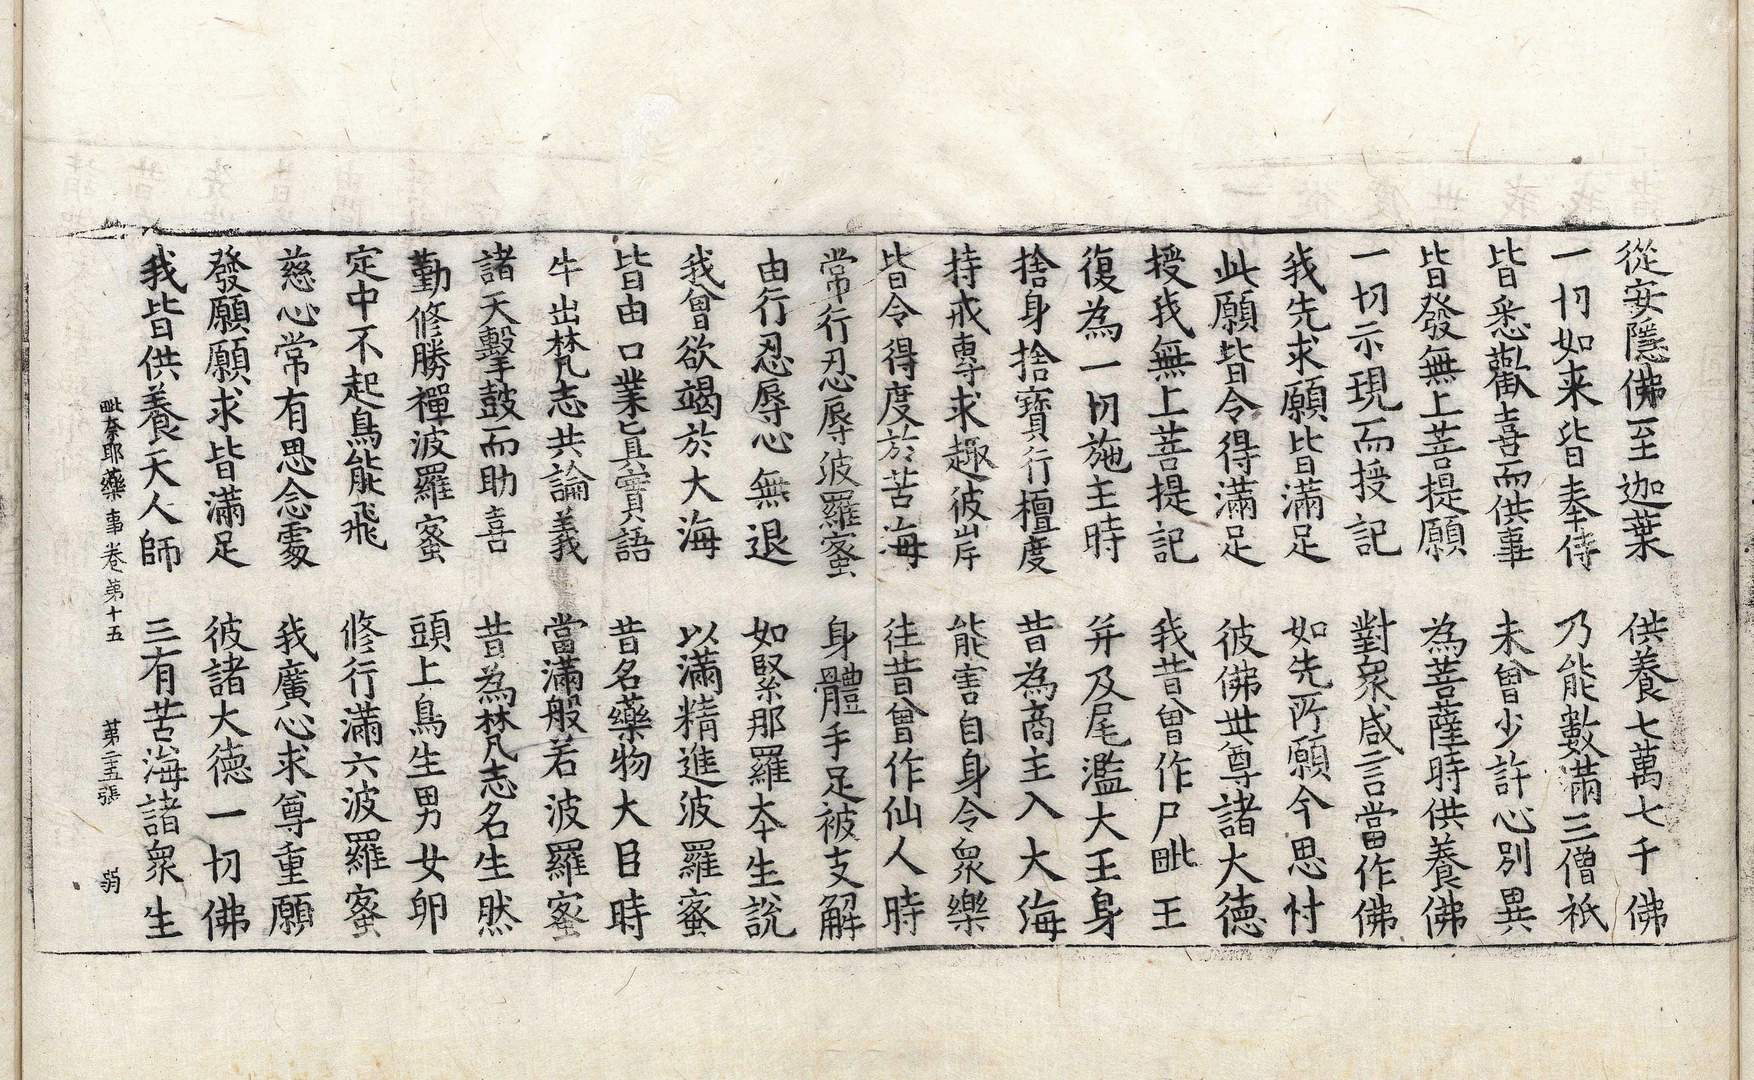 從安隱佛至迦葉　供養七萬七千佛
一切如来皆奉侍　乃能數滿三僧祇
皆悉歡喜而供事　未曾少許心別異
皆發無上菩提願　為菩薩時供養佛
一切示現而授記　對衆咸言當作佛
我先求願皆滿足　如先所願今思忖
此願皆令得滿足　彼佛世尊諸大德
授我無上菩提記　我昔曾作尸毗王
復為一切施主時　并及尾濫大王身
捨身捨寶行檀度　昔為商主入大海
持戒專求趣彼岸　能害自身令衆樂
皆令得度於苦海　往昔曾作仙人時
常行忍辱波羅蜜　身體手足被支解
由行忍辱心無退　如緊那羅本生說
我曾欲竭於大海　以滿精進波羅蜜
皆由口業真實語　昔名藥物大臣時
牛出梵志共論義　當滿般若波羅蜜
諸天擊鼓而助喜　昔為梵志名生然
勤修勝禪波羅蜜　頭上鳥生男女卵
定中不起鳥能飛　修行滿六波羅蜜
慈心常有思念處　我廣心求尊重願
發願願求皆滿足　彼諸大德一切佛
我皆供養天人師　三有苦海諸衆生
毗奈耶藥事卷第十五　第二五張　弱